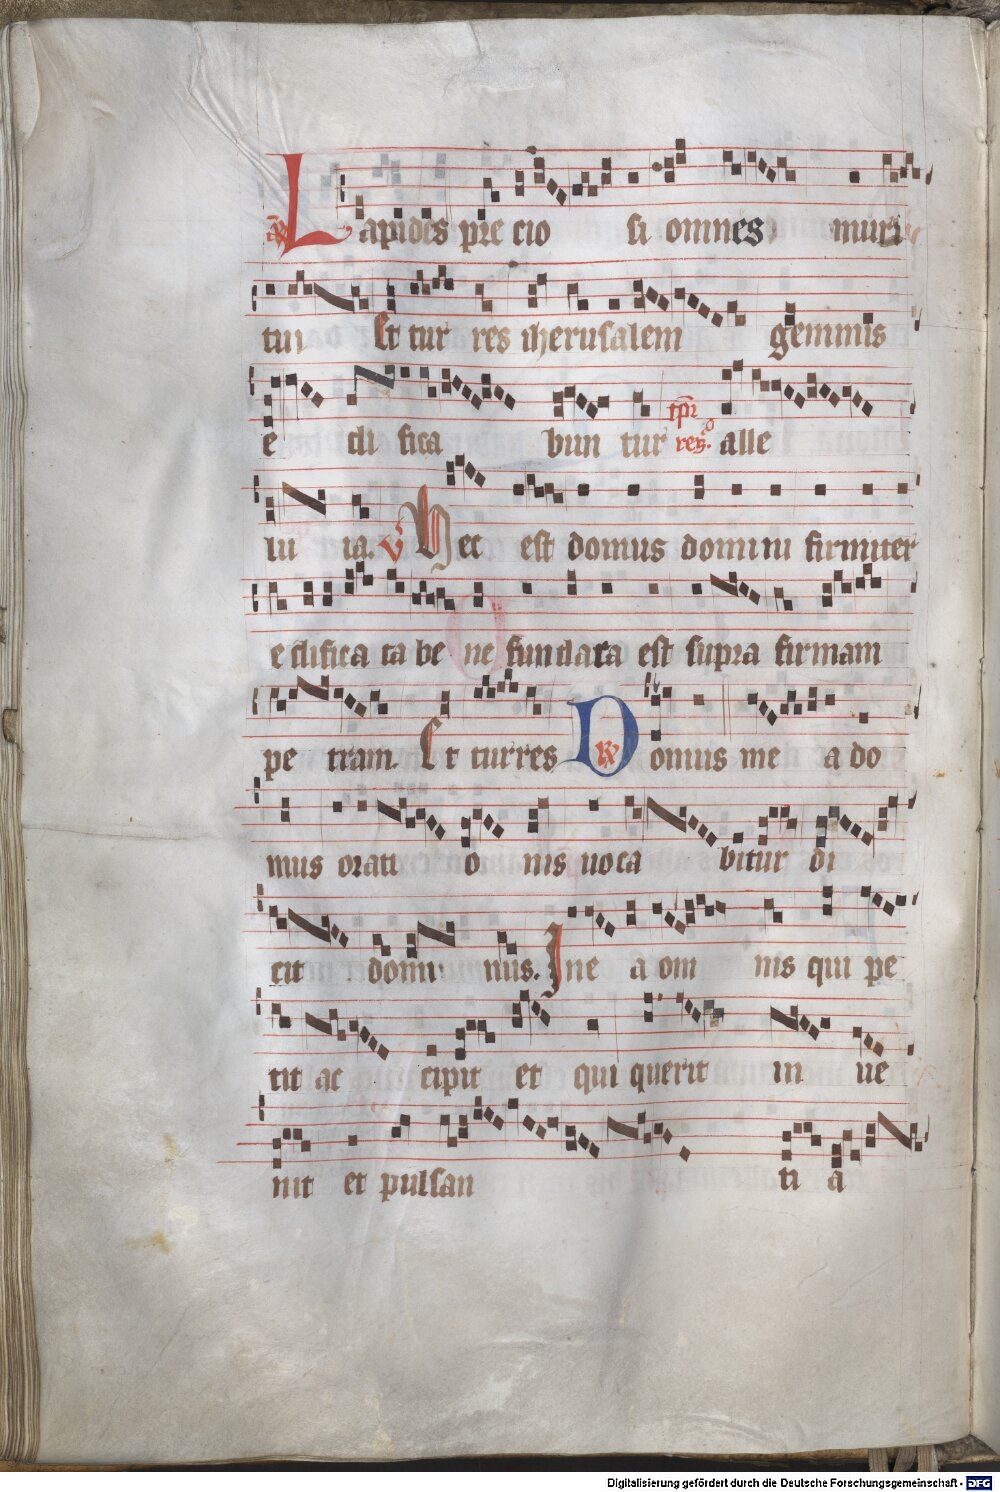 ℟ Lapides pre cio si omnes muri
tui Et tur res iherusalem gemmis
e difica bun tur tpr alle
res͛.
lu ia. V Hec est domus domini firmiter
edifica ta be ne fundata est supra firmam
pe tram. Et turres ℟ Domus me a do
mus orati o nis uoca bitur di
cit domi nus. Jn e a om nis qui pe
tit ac cipit et qui querit in ue
nit et pulsan ti a
Digitalisierung gefördert durch die Deutsche Forschungsgemeinschaft - DFG